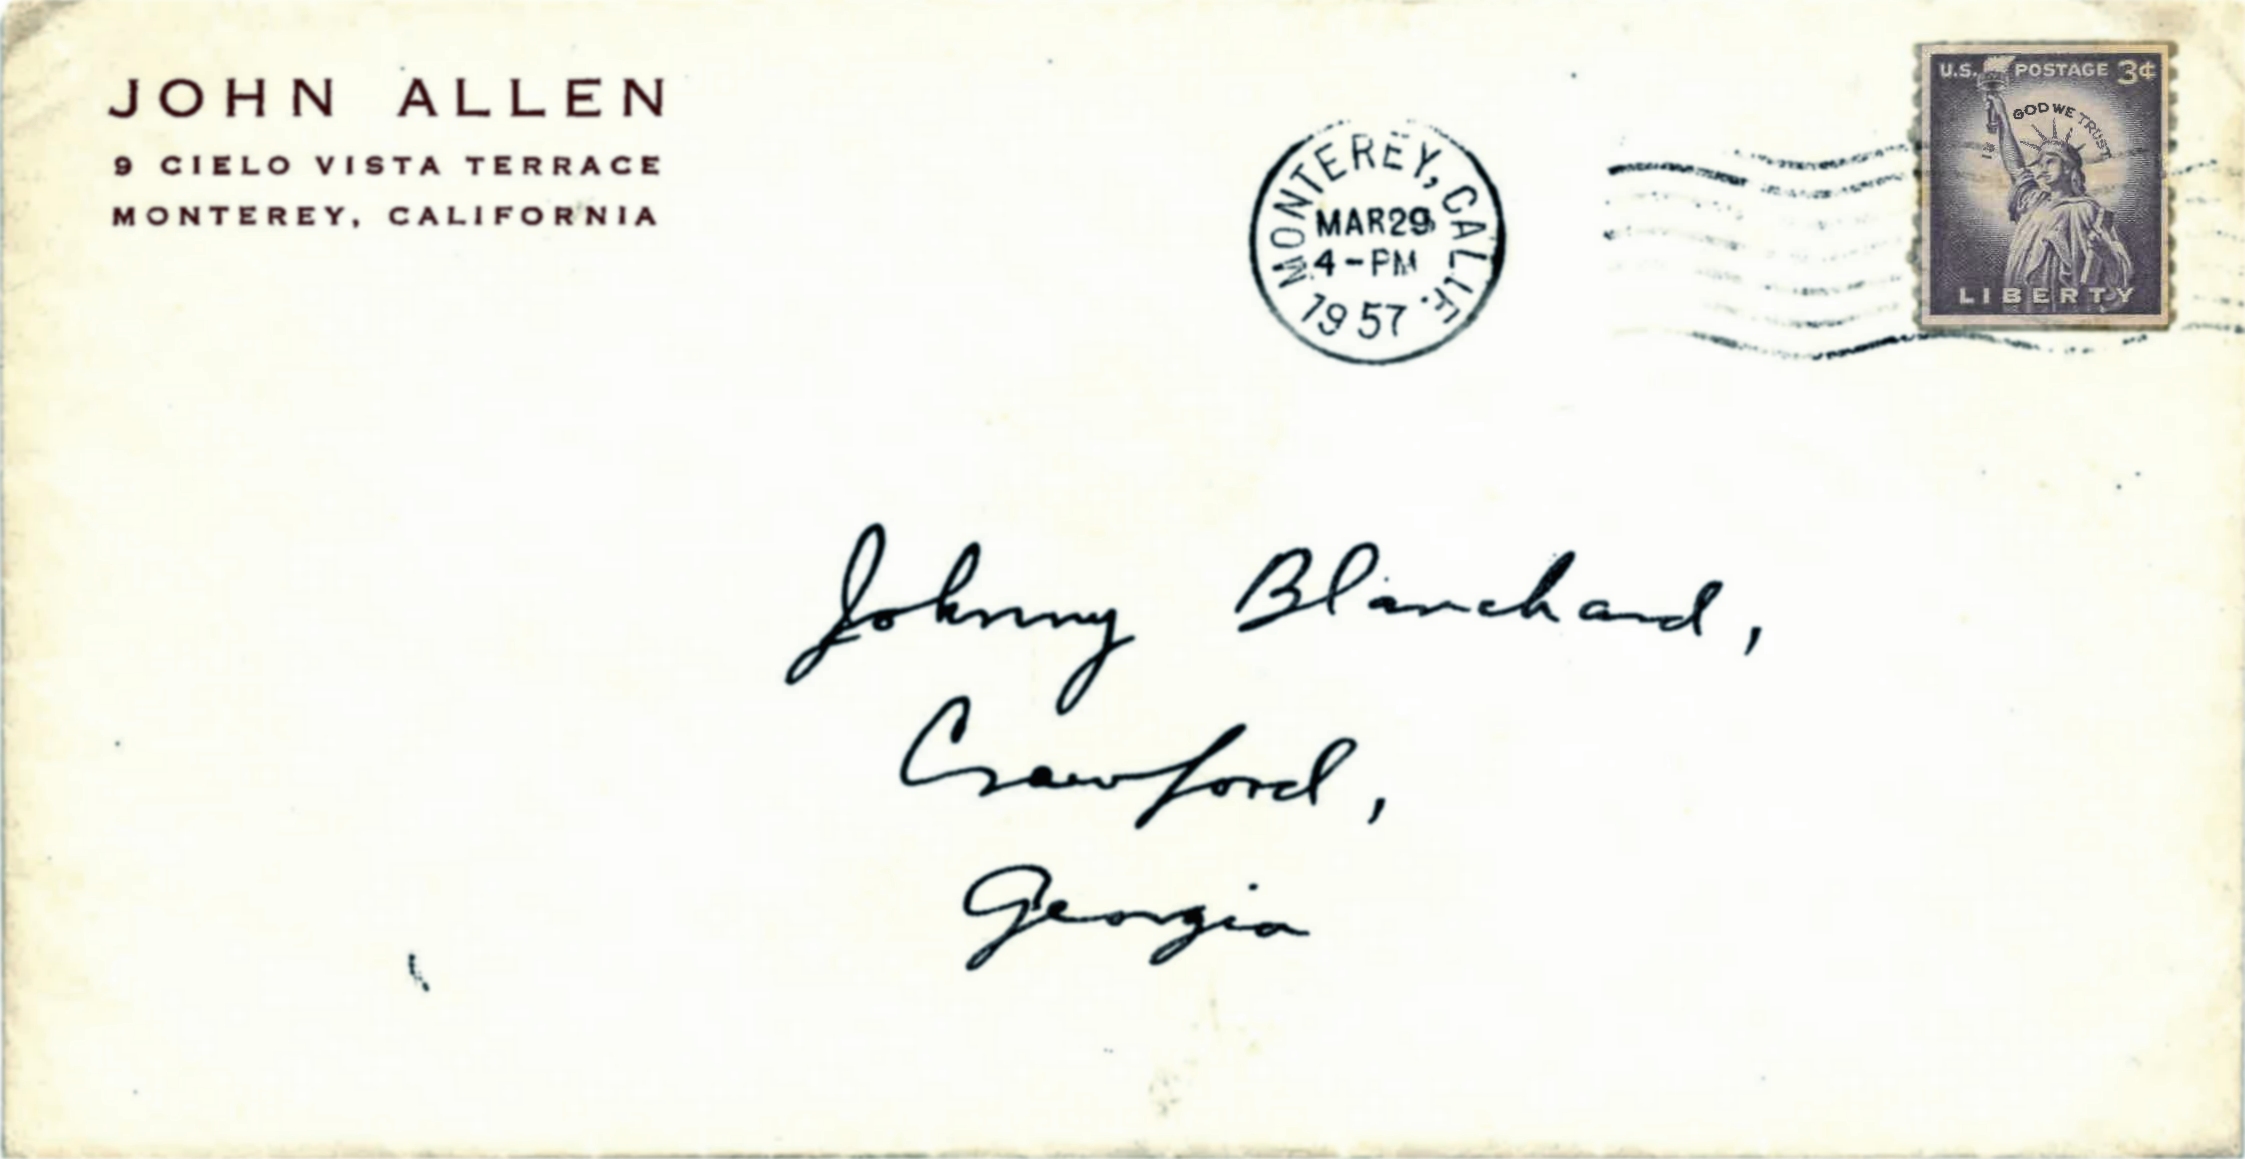 JOHN ALLEN
9 CIELO VISTA TERRACE
MONTEREY, CALIFORNIA
MONTEREY, CALIF.
MAR 29
4-PM
1957
U.S. POSTAGE 3¢
IN GOD WE TRUST
LIBERTY
Johnny Blanchard,
Crawford,
Georgia